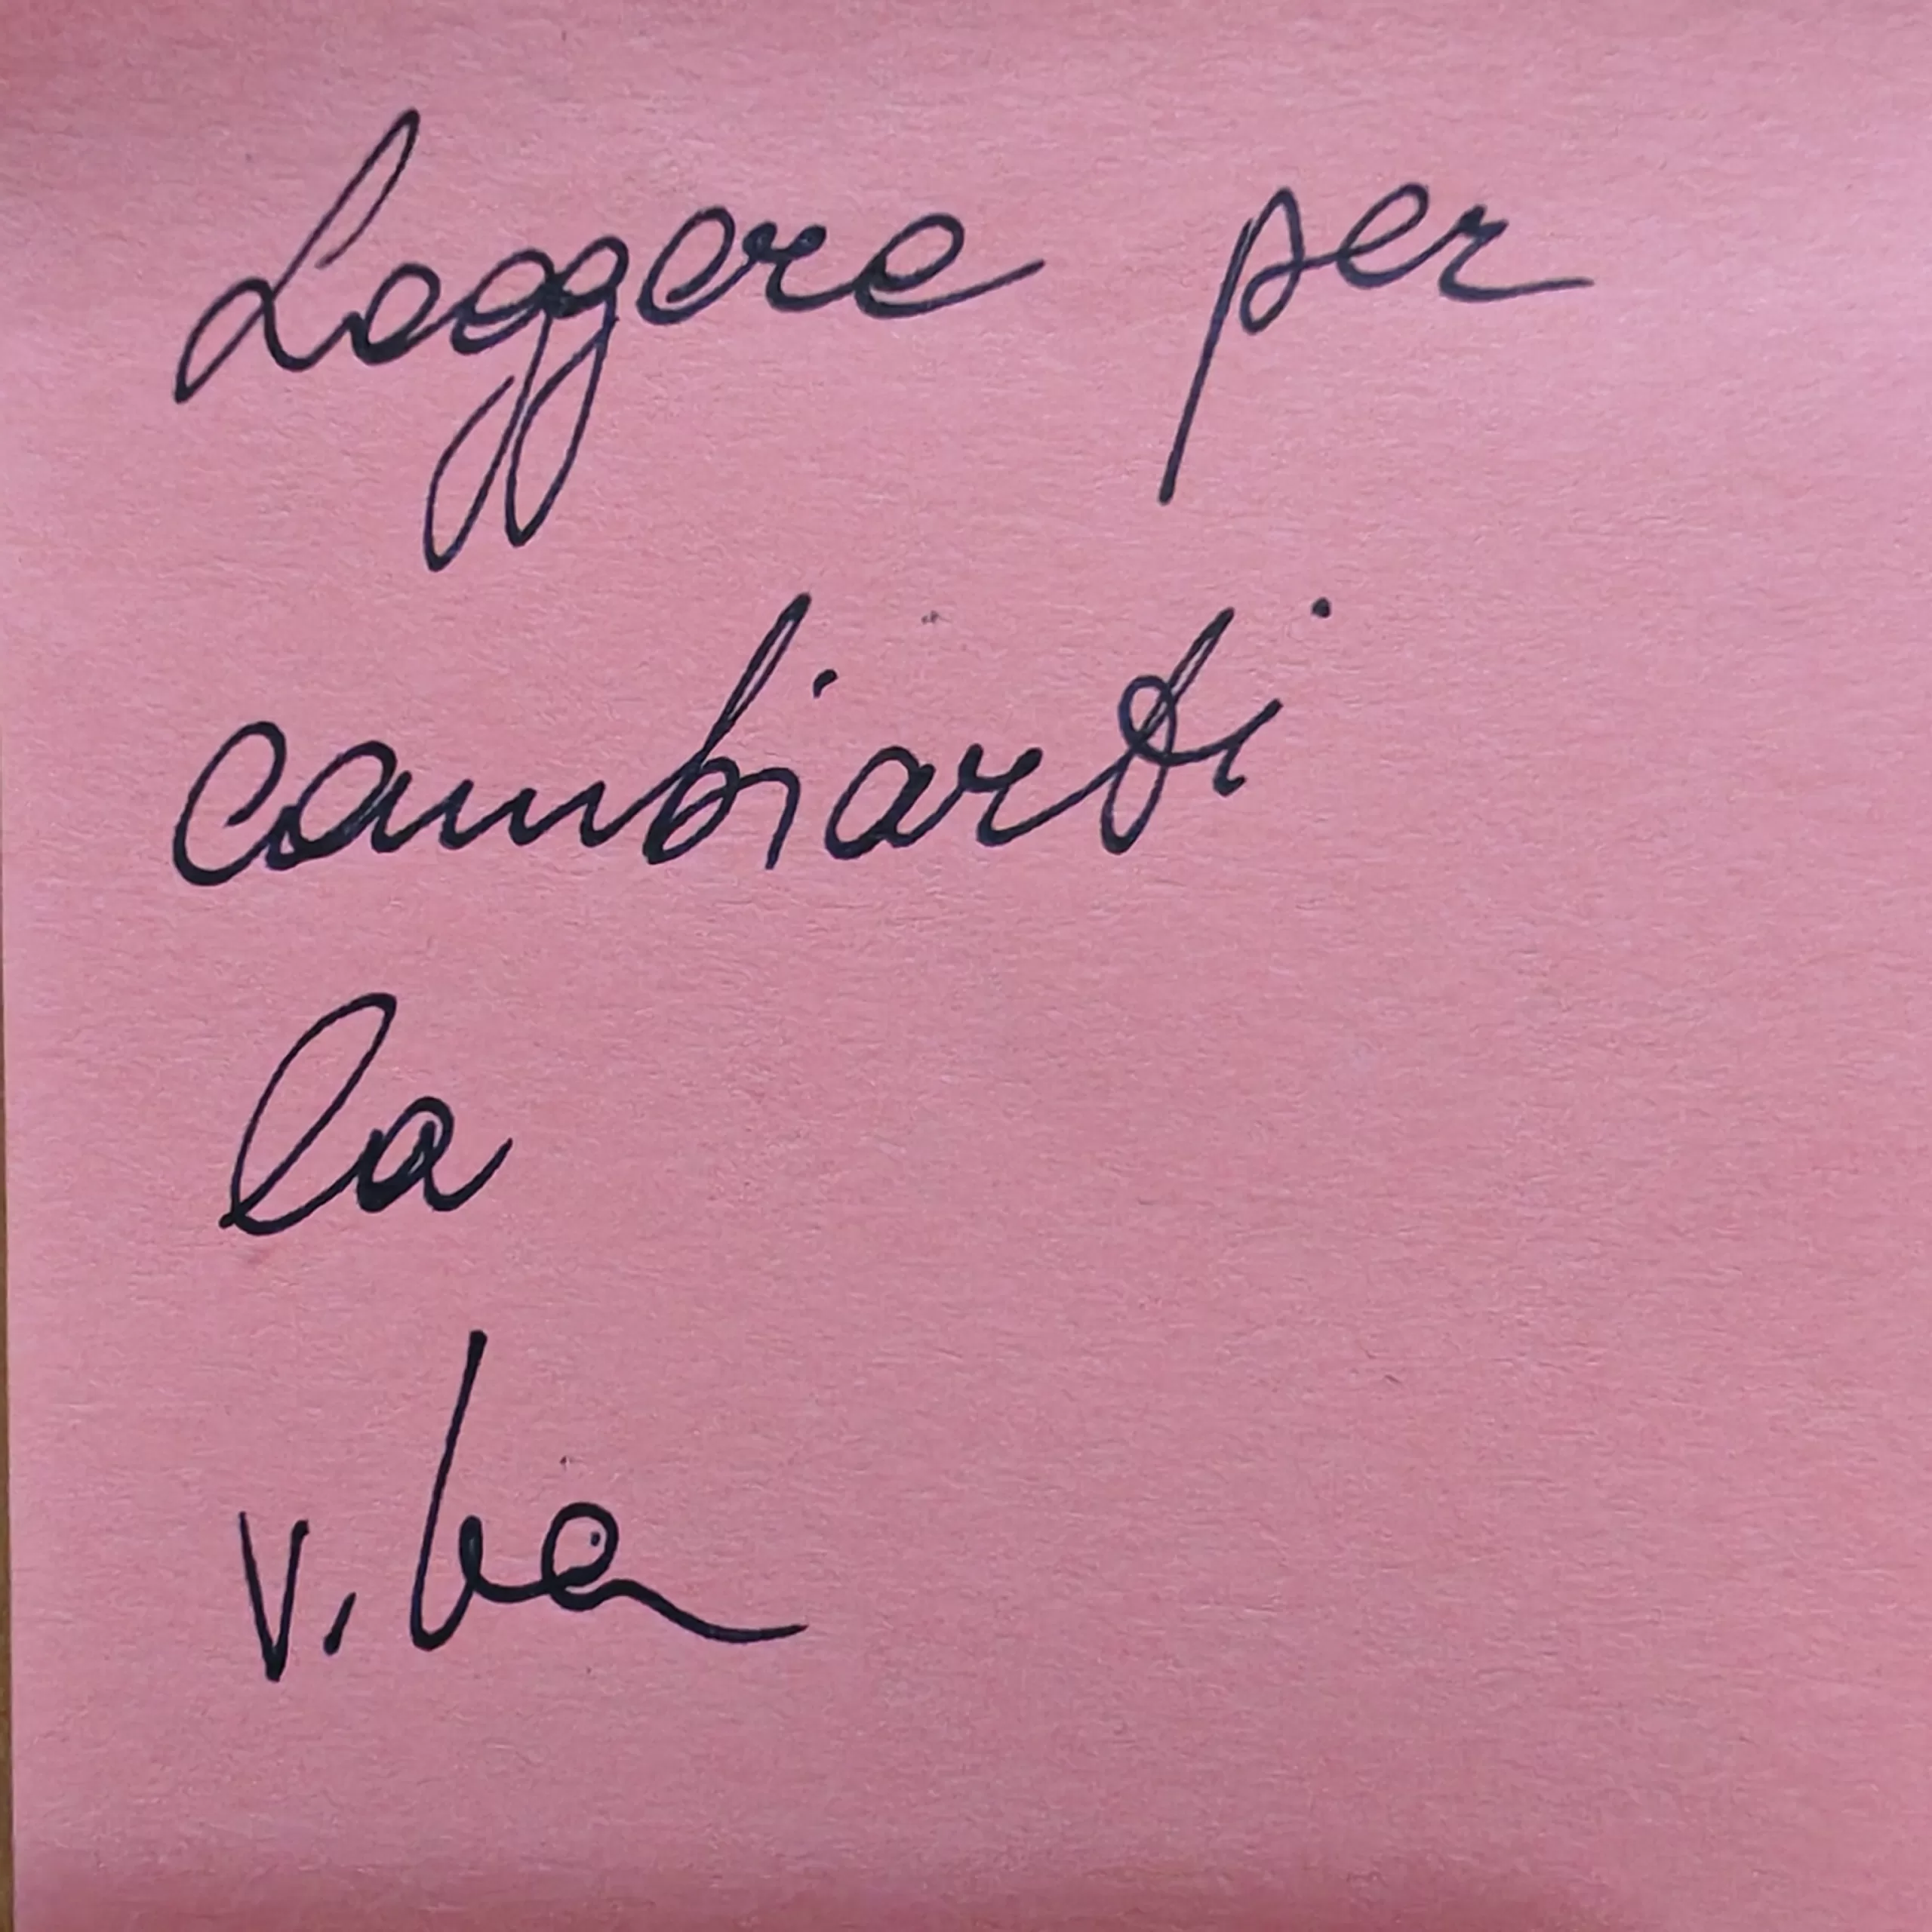 Leggere per
cambiarti
la
vita